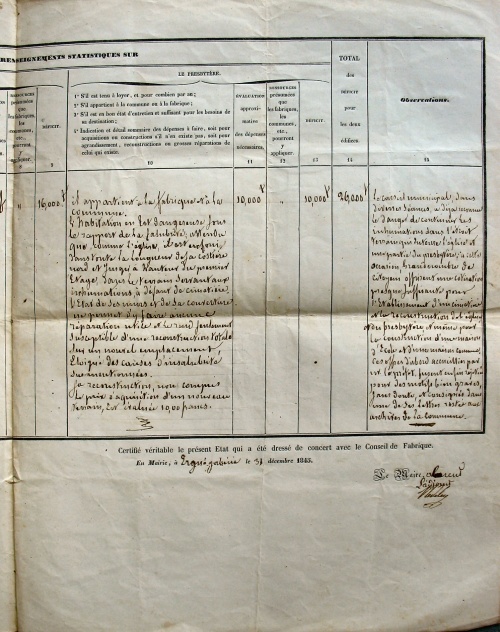 RENSEIGNEMENTS STATISTIQUES SUR
LE PRESBYTÈRE.
TOTAL
des
DÉFICIT
pour
les deux
édifices.
Observations.
RESSOURCES
présumées
que
les fabriques,
les
communes,
etc.,
pourront
y
appliquer.
DÉFICIT.
1° S'il est tenu à loyer, et pour combien par an;
2° S'il appartient à la commune ou à la fabrique;
3° S'il est en bon état d'entretien et suffisant pour les besoins de
sa destination;
4° Indication et détail sommaire des dépenses à faire, soit pour
acquisitions ou constructions s'il n'en existe pas, soit pour
agrandissement, reconstructions ou grosses réparations de
celui qui existe.
ÉVALUATION
approxi-
mative
des dépenses
nécessaires.
RESSOURCES
présumées
que
les fabriques,
les
communes,
etc.,
pourront
y
appliquer.
DÉFICIT.
8
9
10
11
12
13
14
"
16,000 f
il appartient à la fabrique et à la
commune.
L'habitation en est dangereuse sous
le rapport de la salubrité, attendu
que comme l'église, il est enfoui
dans toute la longueur de sa costière
nord et jusqu'à hauteur du premier
étage, dans le terrain servant aux
inhumations, à défaut de cimetière.
l'Etat de ses murs et de sa couverture
ne permet d'y faire aucune
réparation utile et le rend seulement
susceptible d'une reconstruction totale
sur un nouvel emplacement,
éloigné des causes d'insalubrité
sus mentionnées.
Sa reconstruction, non compris
le prix d'acquisition d'un nouveau
terrain, est évaluée 10,000 francs.
10,000 f
"
10,000 f
26,000 f
Le conseil municipal, dans
diverses séances, a
le danger de continuer les
inhumations dans l'étroit
terrain qui entoure l'église et
une partie du presbytère; à cette
occasion grand nombre de
citoyens offrirent une cotisation
presque suffisante pour
l'établissement d'un cimetière
et la reconstruction de l'église
et du presbytère, et même pour la
construction d'une maison
d'Ecole et d'une maison commune.
Ces offres d'abord accueillies par
furent enfin rejetées
pour des motifs bien graves,
sans doute, et consignés dans
une de ses lettres restée aux
archives de la commune.
Certifié véritable le présent Etat qui a été dressé de concert avec le Conseil de Fabrique.
En Mairie, à Ergué-gabéric le 31 décembre 1845.
Le Maire,
l'adjoint